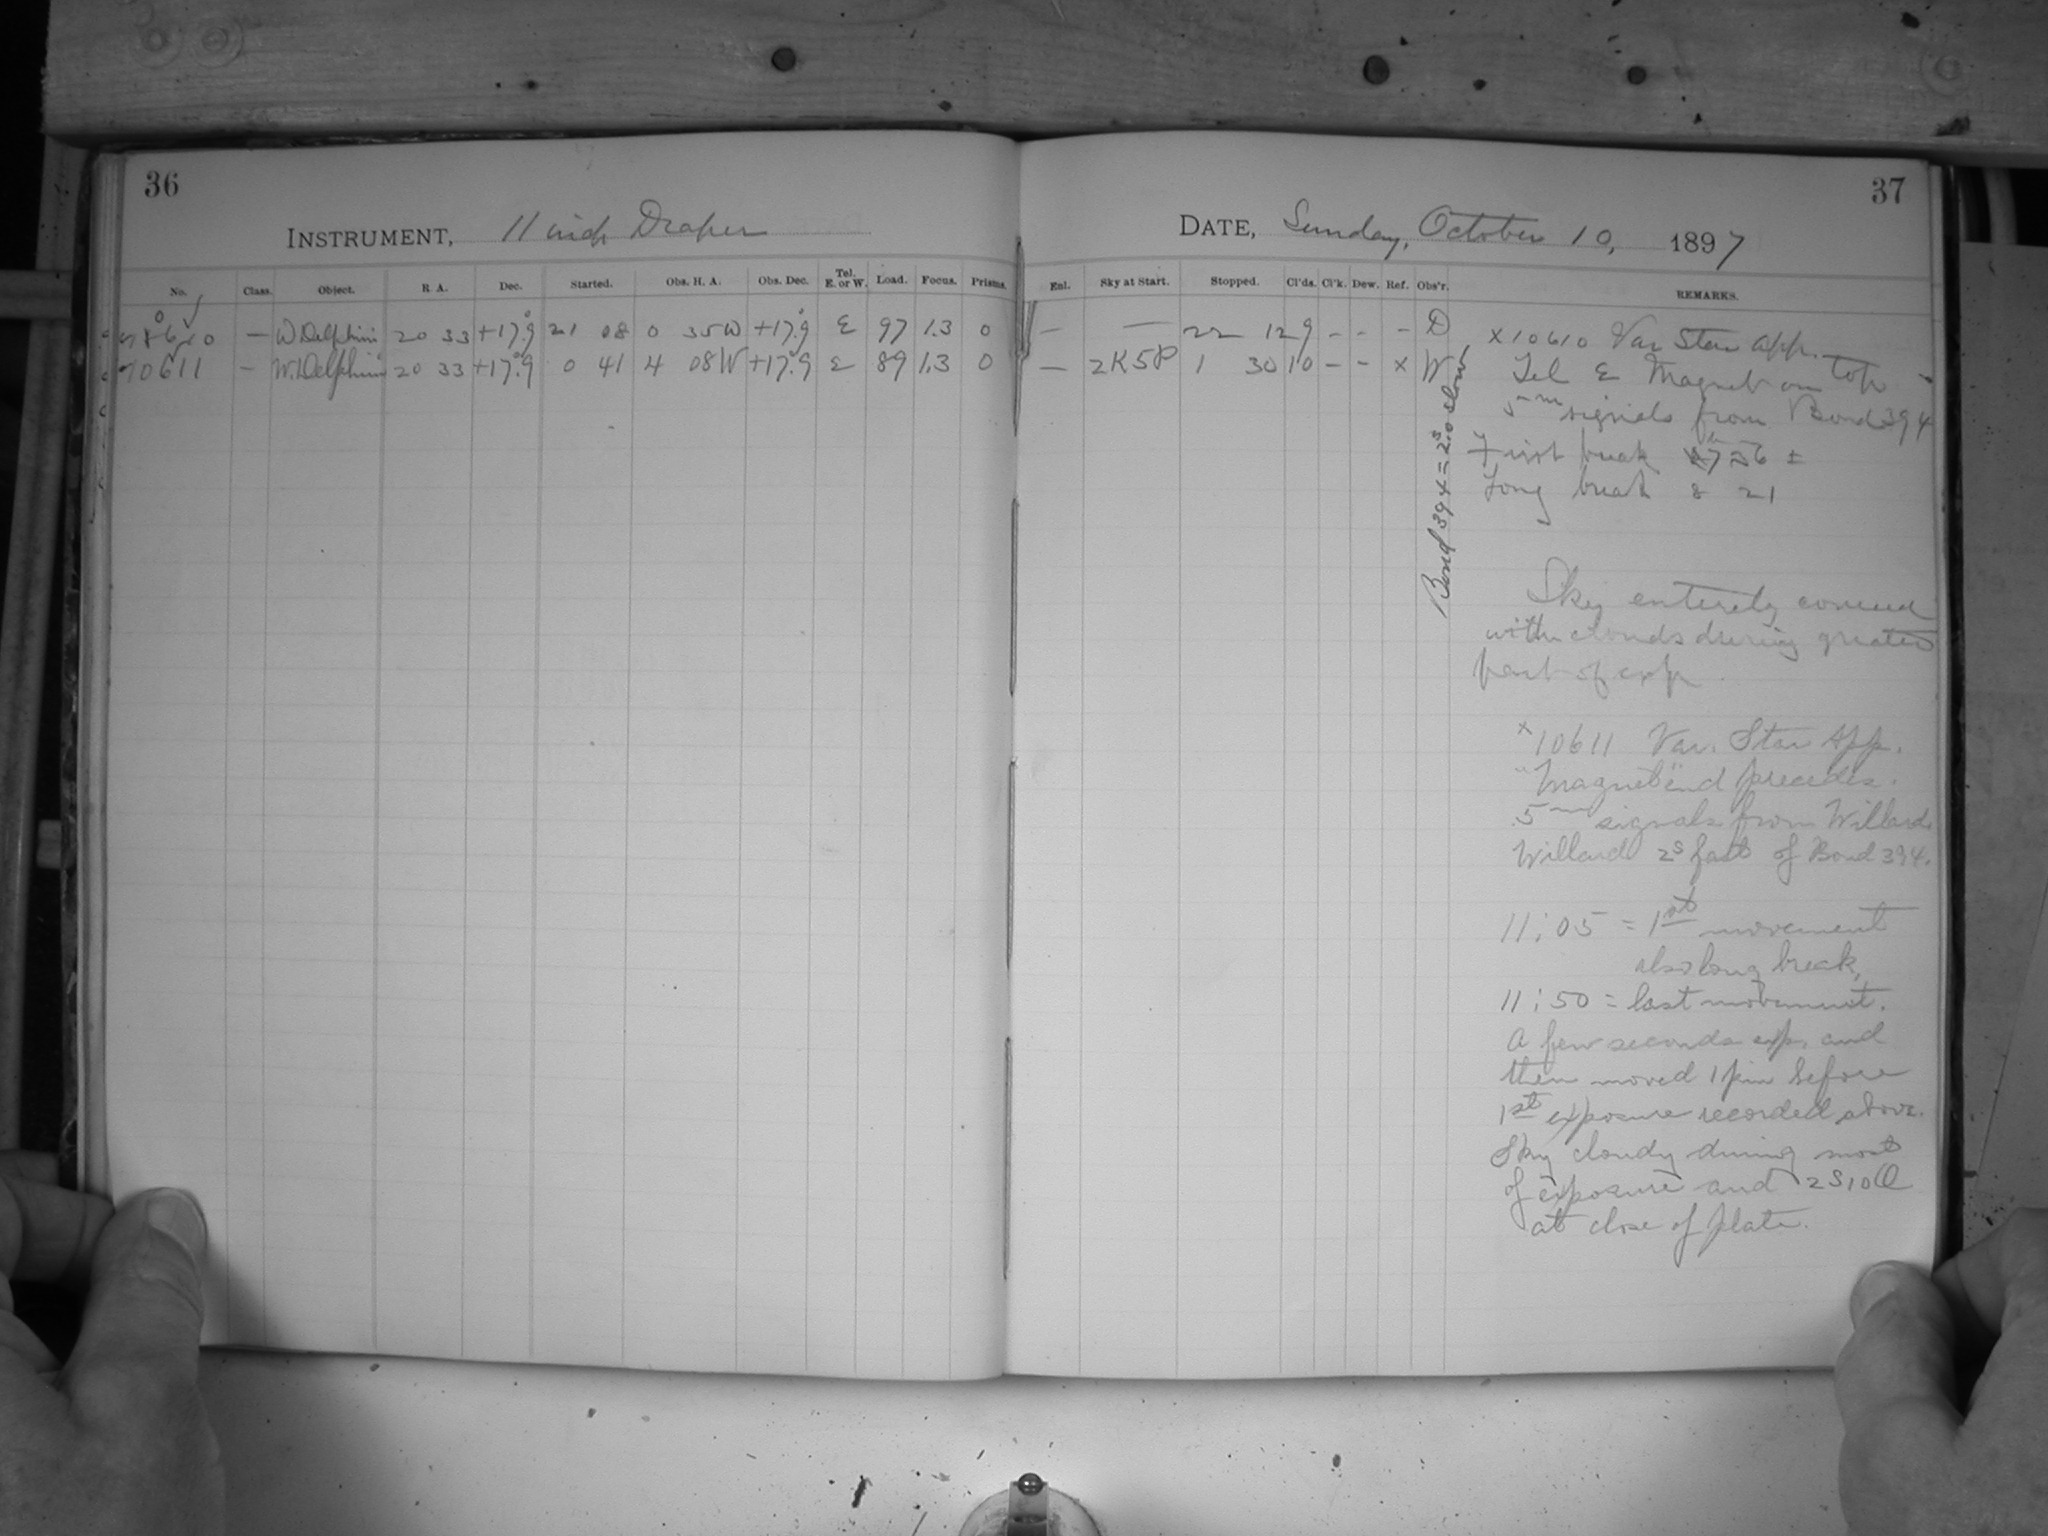 36
INSTRUMENT, 11 inch Draper
No. Class. Object. R A. Dec. Started. Obs. H. A. Obs. Dec. Tel. E. or W. Load. Focus. Prisms.
— W Delphini 20 33 +17.9 21 08 0 35W +17.9 E 97 1.3 0
10611 — W. Delphini 20 33 +17.9 0 41 4 08W +17.9 E 89 1.3 0
37
DATE, Sunday, October 10, 1897
Enl. Sky at Start. Stopped. Cl'ds. Cl'k. Dew. Ref. Obs'r. REMARKS.
— — 22 12 9 - - - D
— 2K5P 1 30 10 - - x W
Bond 394 = 2.0s slow
x10610 Var Star App.
Tel E Magnet on top
5m signals from Bond 394
First break 7 56 ±
Long break 8 21
Sky entirely covered
with clouds during greater
part of exp.
x10611 Var. Star App.
"Magnet" end precedes.
5m signals from Willard
Willard 2s fast of Bond 394.
11:05 = 1st movement
also long break,
11:50 = last movement.
A few seconds exp. and
then moved 1 pin before
1st exposure recorded above.
Sky cloudy during most
of exposure and 2S10Q
at close of plate.